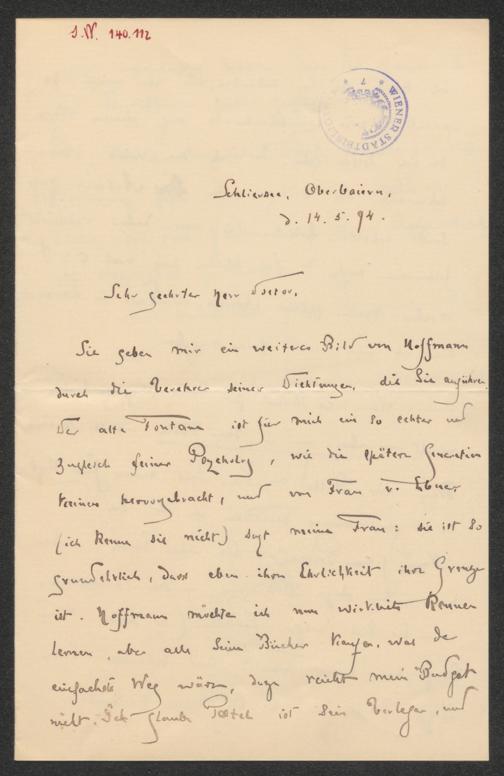 J.N. 140.112
WIENER STADTBIBLIO
Schliersee, Oberbaiern,
d. 14. 5. 94.
Sehr geehrter Herr Doctor,
Sie geben mir ein weiteres Bild von Hoffmann
durch die Verehrer seiner Dichtungen, die Sie anführen.
Der alte Fontane ist für mich ein so echter und
zugleich feiner Psycholog, wie die spätere Generation
keinen hervorgebracht, und von Frau v. Ebner
(ich kenne sie nicht) sagt meine Frau: sie ist so
grundehrlich, dass eben ihre Ehrlichkeit ihre Grenze
ist. Hoffmann möchte ich nun wirklich kennen
lernen, aber alle seine Bücher kaufen, was der
einfachste Weg wäre, dazu reicht mein Budget
nicht. Ich glaube Paetel ist sein Verleger, und